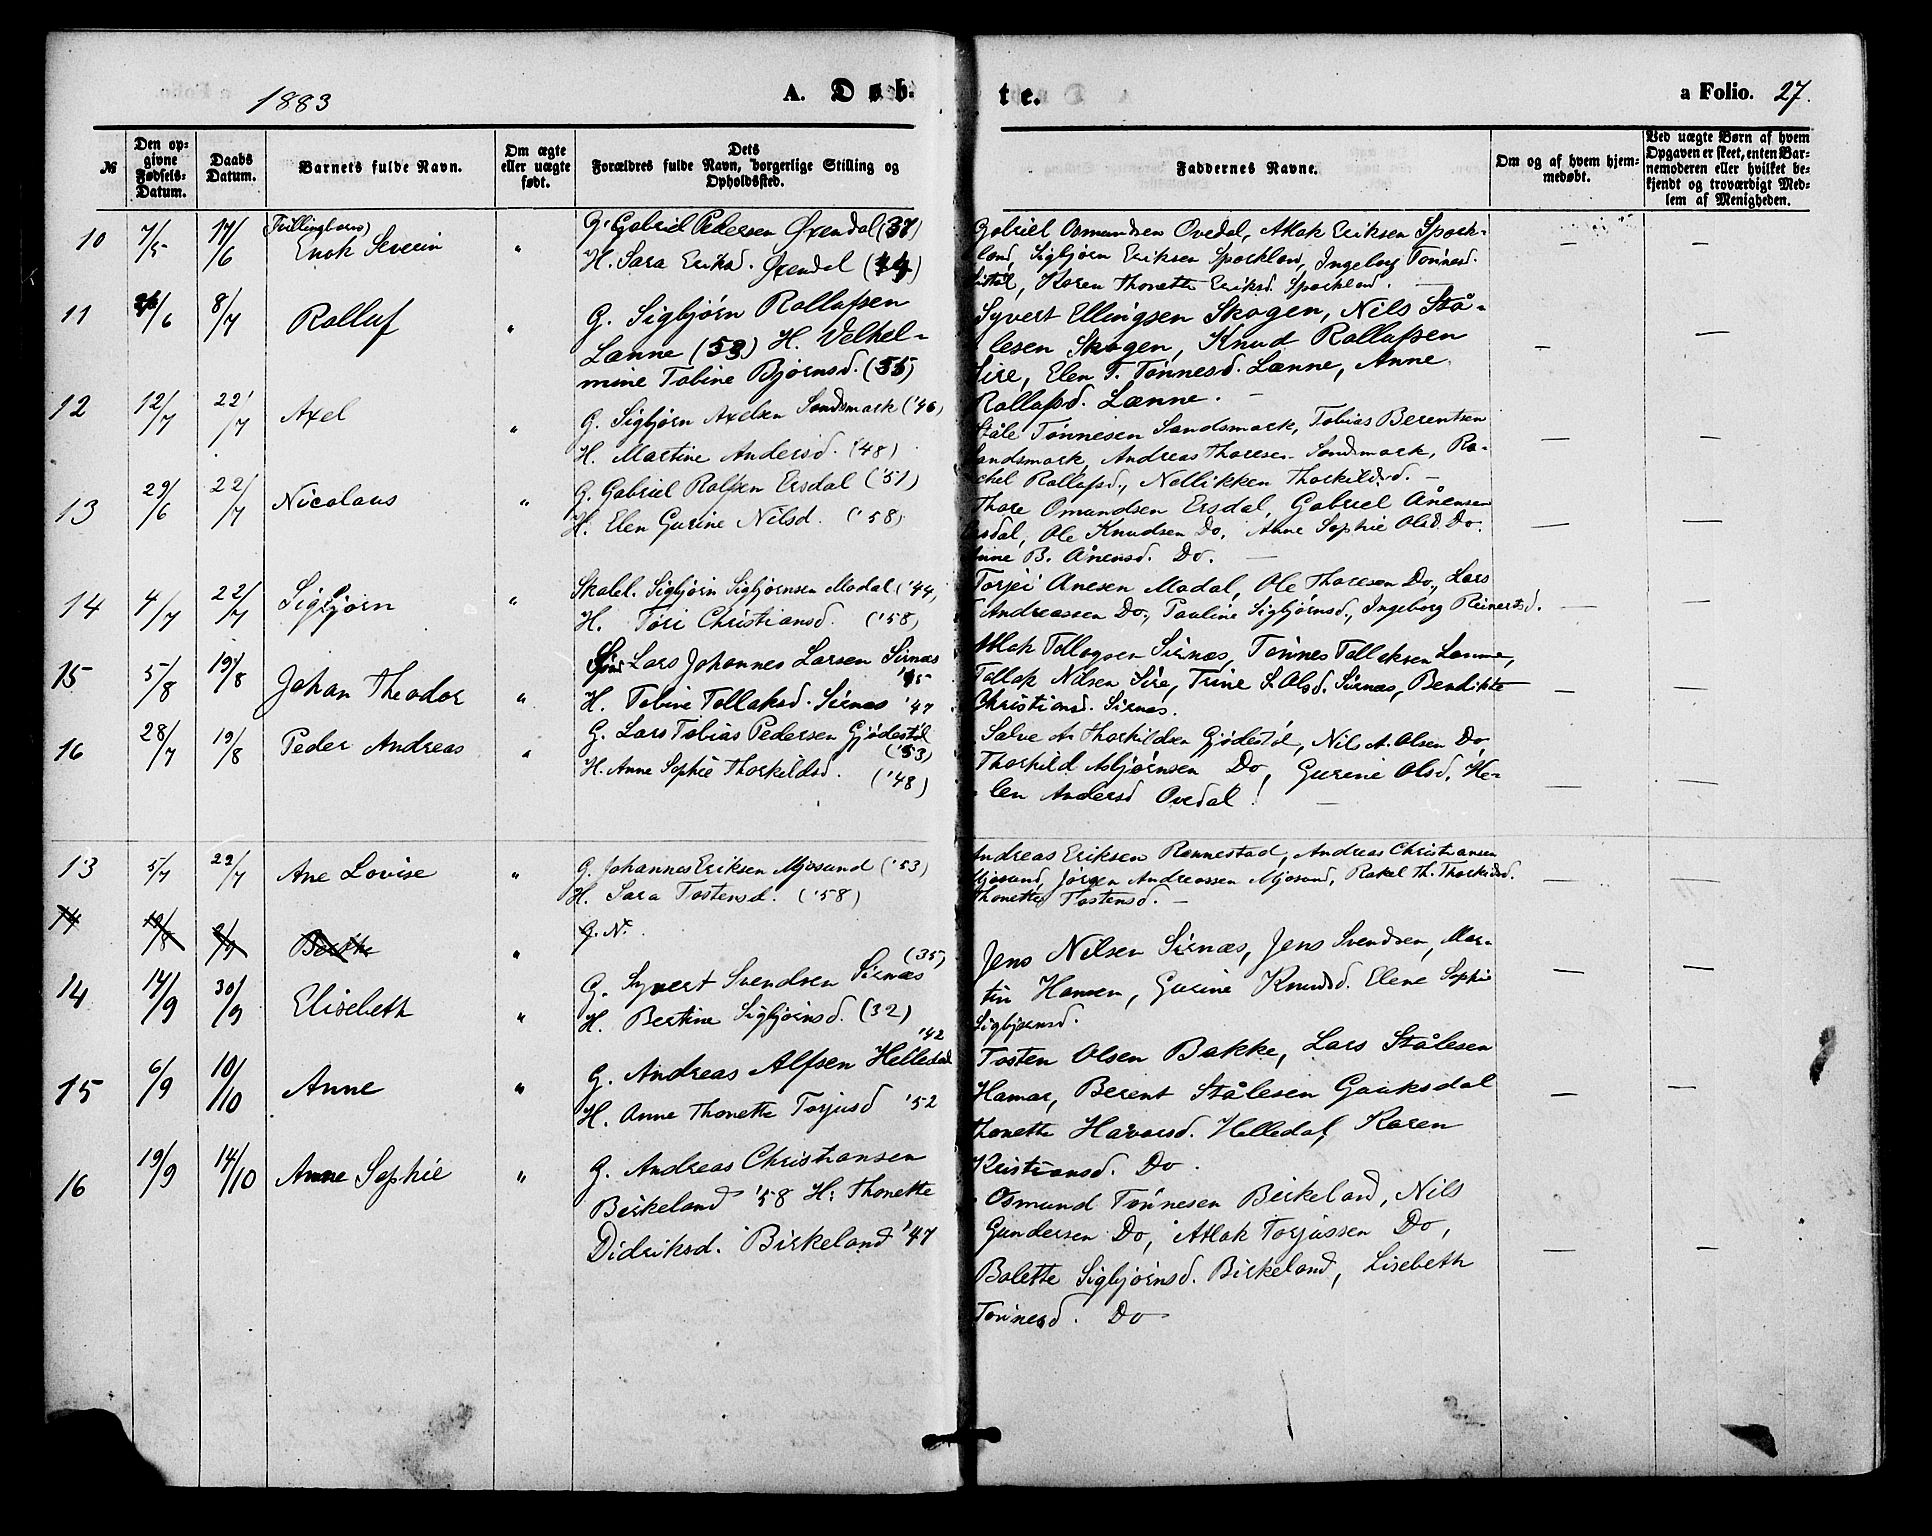 1883
A. Døb-
te.
a Folio. 27.
№
Den op-
givne
Fødsels-
Datum.
Daabs
Datum.
Barnets fulde Navn.
Om ægte
eller uægte
født.
Dets
Forældres fulde Navn, borgerlige Stilling og
Opholdssted.
Faddernes Navne.
Om og af hvem hjem-
medøbt.
Ved uægte Børn af hvem
Opgaven er skeet, enten Bar-
nemoderen eller hvilket be-
kjendt og troværdigt Med-
lem af Menigheden.
10 7/5 17/6 (Tvillingbarn)
Enok Severin "
G. Gabriel Pedersen Øxendal (37)
H. Sara Eriksd. Øxendal
Gabriel Osmundsen Ovedal, Atlak Eriksen Spock-
land, Sigbjørn Eriksen Spockland, Ingeborg Tønnesd.
Karen Thonette Eriksd. Spockland. — — —
11 /6 8/7 Rolluf "
G. Sigbjørn Rollafsen
Lanne (53) H. Velhel-
mine Tobine Bjørnsd. (55)
Syvert Ellingsen Skogen, Nils Stå-
lesen Skogen, Knud Rollafsen
Sire, Elen T. Tønnesd. Lænne, Anne
Rollafsd. Lænne. — — —
12 12/7 22/7 Axel "
G. Sigbjørn Axelsen Sandsmark ('46)
H. Martine Andersd. ('48)
Ståle Tønnesen Sandsmark, Tobias Berentsen
Sandsmark, Andreas Thoresen Sandsmark, Ra-
chel Rollafsd., Nellikken Thorkildsd. — — —
13 29/6 22/7 Nicolaus "
G. Gabriel Rolfsen Ersdal ('51)
H. Elen Gurine Nilsd. ('58)
Thore Omundsen Ersdal, Gabriel Ånensen
Ersdal, Ole Knudsen Do, Anne Sophie Olsd. Do.
Anne B. Ånensd. Do. — — —
14 4/7 22/7 Sigbjørn "
Skolel. Sigbjørn Sigbjørnsen Modal ('44)
H. Tori Christiansd. ('58)
Torjei Anesen Modal, Ole Thoresen Do., Lars
Andreassen Do., Pauline Sigbjørnsd., Ingeborg Reinertsd. — —
15 5/8 19/8 Johan Theodor "
Lars Johannes Larsen Sirnæs
'45
H. Tobine Tollaksd. Sirnæs '47
Atlak Tollagsen Sirnæs, Tønnes Tollaksen Lænne,
Tollak Nilsen Sire, Trine S. Olsd. Sirnæs, Bendikte
Christiansd. Sirnæs. — —
16 28/7 19/8 Peder Andreas "
G. Lars Tobias Pedersen Gjødestøl
('53)
H. Anne Sophie Thorkildsd.
('48)
Salve A. Thorkildsen Gjødestøl, Nils A. Olsen Do
Thorkild Asbjørnsen Do, Gurine Olsd, He-
len Andersd Ovedal! — — —
13 5/7 22/7 Ane Lovise "
G. Johannes Eriksen Mjosund ('53)
H. Sara Tostensd. ('58)
Andreas Eriksen Rannestad, Andreas Christiansen
Mjosund, Jørgen Andreassen Mjosund, Rakel Th. Thorkildsd.
Thonette Tostensd. — — —
14 19/8 9/9 Berthe "
G. N.
14 14/9 30/9 Elisebeth "
(35)
G. Syvert Svendsen Sirnæs
H. Bertine Sigbjørnsd. (32)
Jens Nilsen Sirnæs, Jens Svendsen, Mar-
tin Hansen, Gurine Knudsd. Elene Sophie
Sigbjørnsd. — —
15 6/9 10/10 Anne "
'42
G. Andreas Alfsen Helledal
H. Anne Thonette Torjusd '52
Tosten Olsen Bakke, Lars Stålesen
Hamar, Berent Stålesen Gauksdal
Thonette Havorsd. Helledal, Karen
Kristiansd. Do. — —
16 19/9 14/10 Anne Sophie "
G. Andreas Christiansen
Birkeland '58 H: Thonette
Didriksd. Birkeland '47
Osmund Tønnesen Birkeland, Nils
Gundersen Do, Atlak Torjussen Do,
Bolette Sigbjørnsd. Birkeland, Lisebeth
Tønnesd. Do — —